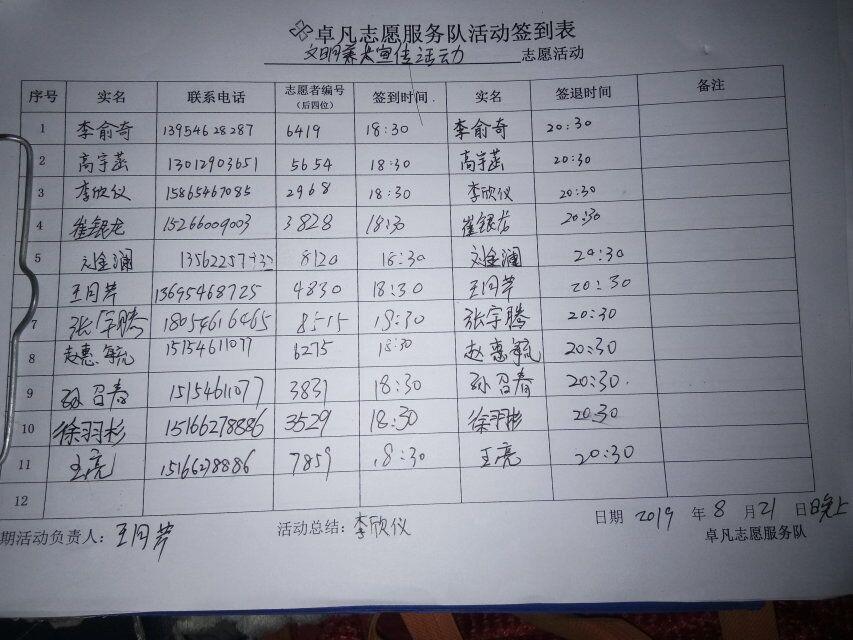 卓凡志愿服务队活动签到表
文明乘车宣传活动 志愿活动
序号 实名 联系电话 志愿者编号（后四位） 签到时间 实名 签退时间 备注
1 李俞奇 13954628287 6419 18:30 李俞奇 20:30
2 高宇菡 13012903651 5654 18:30 高宇菡 20:30
3 李欣仪 15865467085 2968 18:30 李欣仪 20:30
4 崔银龙 15266009003 3828 18:30 崔银龙 20:30
5 刘金澜 8120 18:30 刘金澜 20:30
王同芹 13695468725 4830 18:30 王同芹 20:30
7 张宇腾 18054616465 8515 18:30 张宇腾 20:30
8 赵惠毓 15154611077 6275 18:30 赵惠毓 20:30
9 孙召春 15154611077 3831 18:30 孙召春 20:30
10 徐羽彬 15166278886 3529 18:30 徐羽彬 20:30
11 王亮 15166278886 7859 18:30 王亮 20:30
12
期活动负责人：王同芹 活动总结：李欣仪 日期 2019 年 8 月 21 日晚上
卓凡志愿服务队